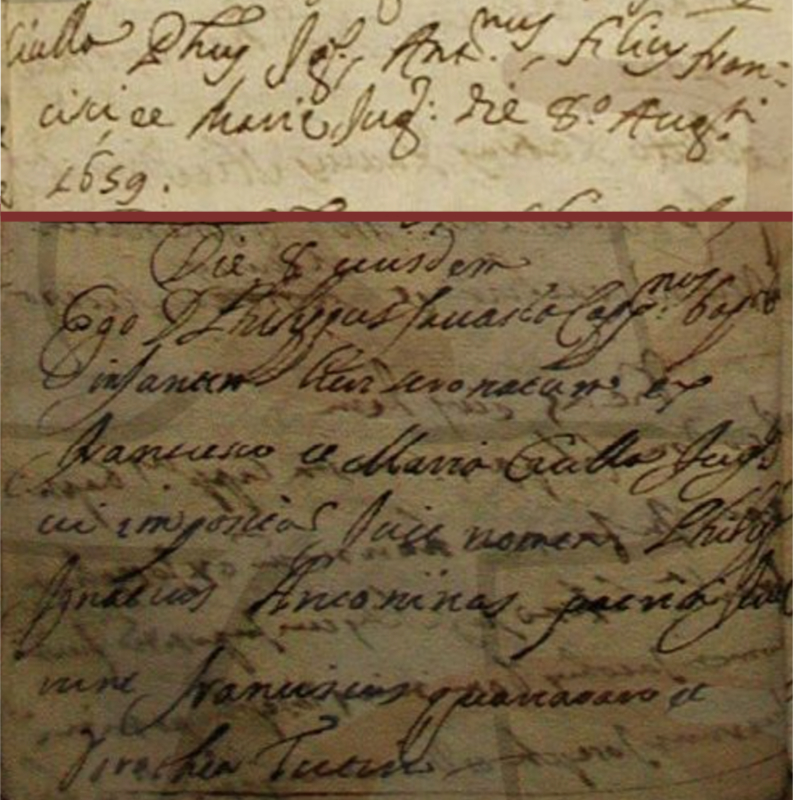 Ciullo Phūs Ign.s Ant.nus filius fran-
cisci et Marie Jug: die 8.º Aug.ti
1659.
Die 8 eiusdem
Ego D Philippus Capp.nus bap
infantem heri sero natum ex
francisco et Maria Ciullo Jug
cui impositus fuit nomen Philip
Ignatius Antoninus patrini fue
runt franciscus et
Dorothea